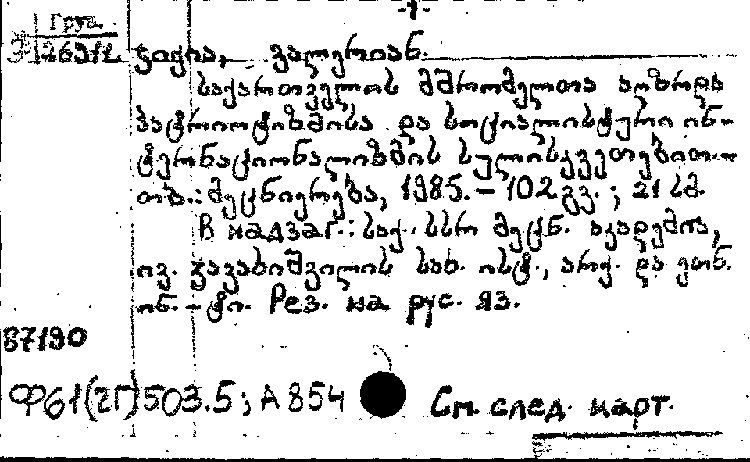 -1-
Груз.
26912 ჯიქია, ვალერიან.
საქართველოს მშრომელთა აღზრდა
პატრიოტიზმისა და სოციალისტური ინ-
ტერნაციონალიზმის სულისკვეთებით.–
თბ.: მეცნიერება, 1985.– 102 გვ.; 21 სმ.
В надзаг.: საქ. სსრ მეცნ. აკადემია,
ივ. ჯავახიშვილის სახ. ისტ., არქ. და ეთნ.
ინ.–ტი. Рез. на рус. яз.
87190
Ф61(2Г)503.5; А854 См. след. карт.